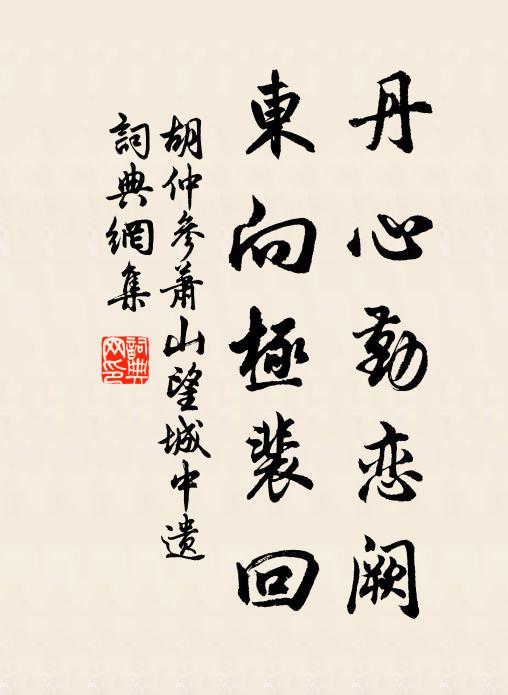 丹心勤恋阙
東向極裴回
胡仲参萧山望城中遗
詞典網集
詞典
网印